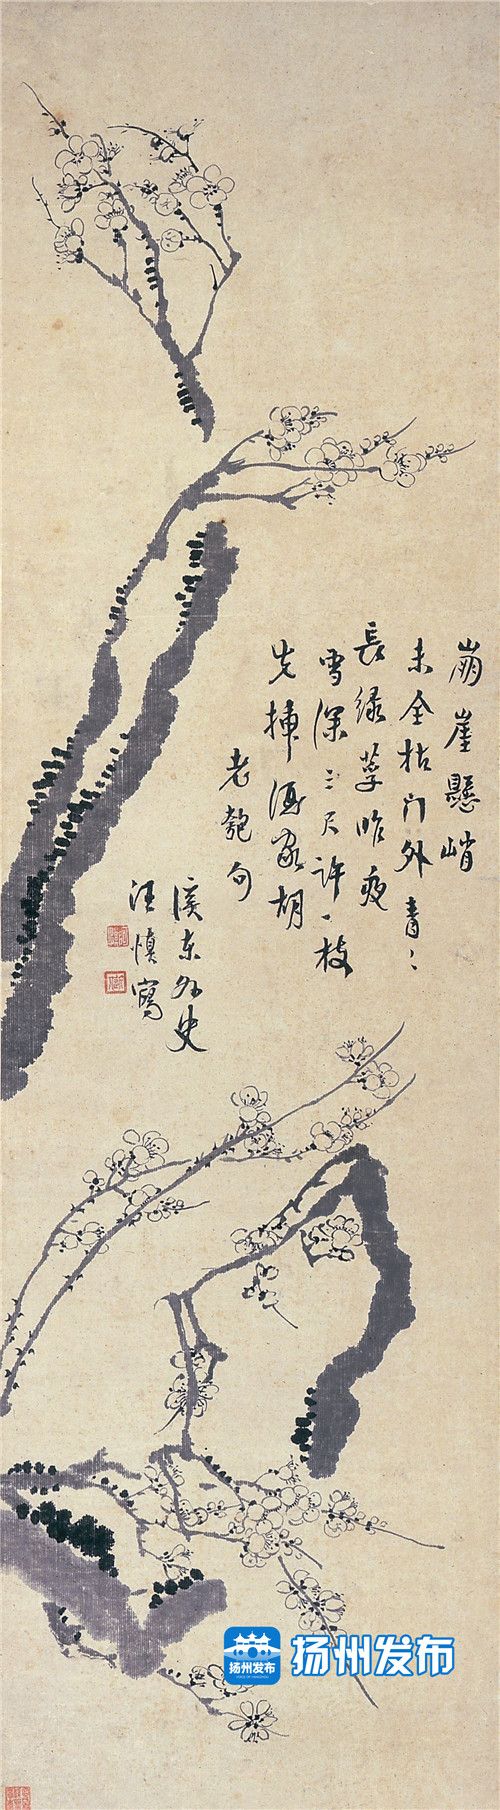 崩崖懸峭
未全枯门外青〻
長绿莩昨夜
雪深三尺许一枝
先挿酒家胡
老匏句
溪东外史
汪慎寫
扬州发布
扬州发布